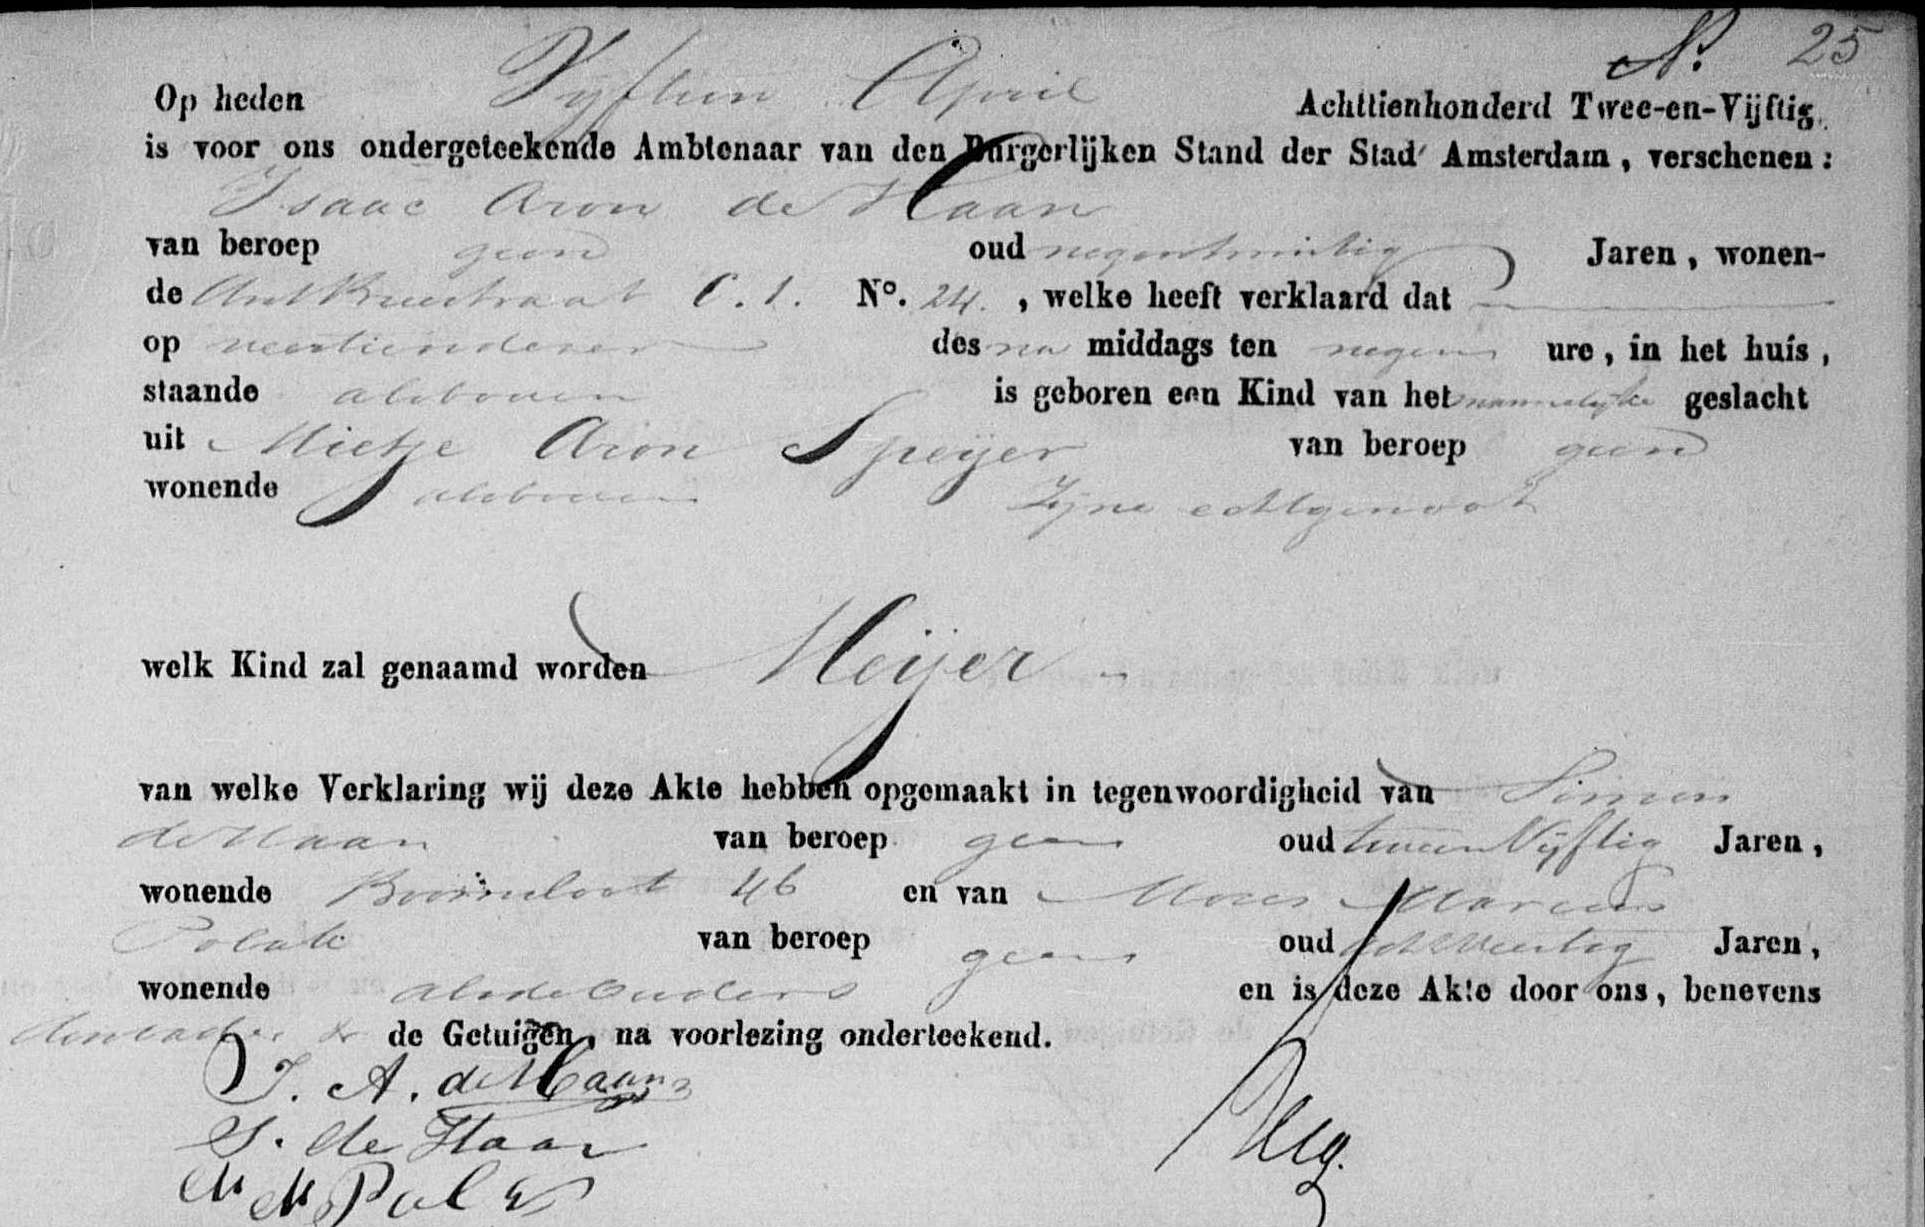 N.º 25
Op heden Vyftien April Achttienhonderd Twee-en-Vijftig,
is voor ons ondergeteekende Ambtenaar van den Burgerlijken Stand der Stad Amsterdam, verschenen:
Isaac Aron de Haan
van beroep geen oud negentwintig Jaren, wonen-
de Ant Breestraat C. 1. Nº. 24. , welke heeft verklaard dat
op veertiendezer des na middags ten negen ure, in het huis,
staande alsboven is geboren een Kind van het mannelijke geslacht
uit Mietje Aron Speijer van beroep geen
wonende alsboven Zyne echtgenoot
welk Kind zal genaamd worden Meijer
van welke Verklaring wij deze Akte hebben opgemaakt in tegenwoordigheid van Simon
de Haan van beroep geen oud tweenVyftig Jaren,
wonende 46 en van Mozes Marcus
Polak van beroep geen oud Jaren,
wonende alsdeOuders en is deze Akte door ons, benevens
denvader & de Getuigen, na voorlezing onderteekend.
I. A. de Haan
S. de Haan
M M Polak